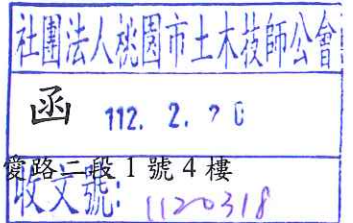 社團法人桃園市土木技師公會
函 112. 2. 20
愛路二段1號4樓
收文號: 1120318